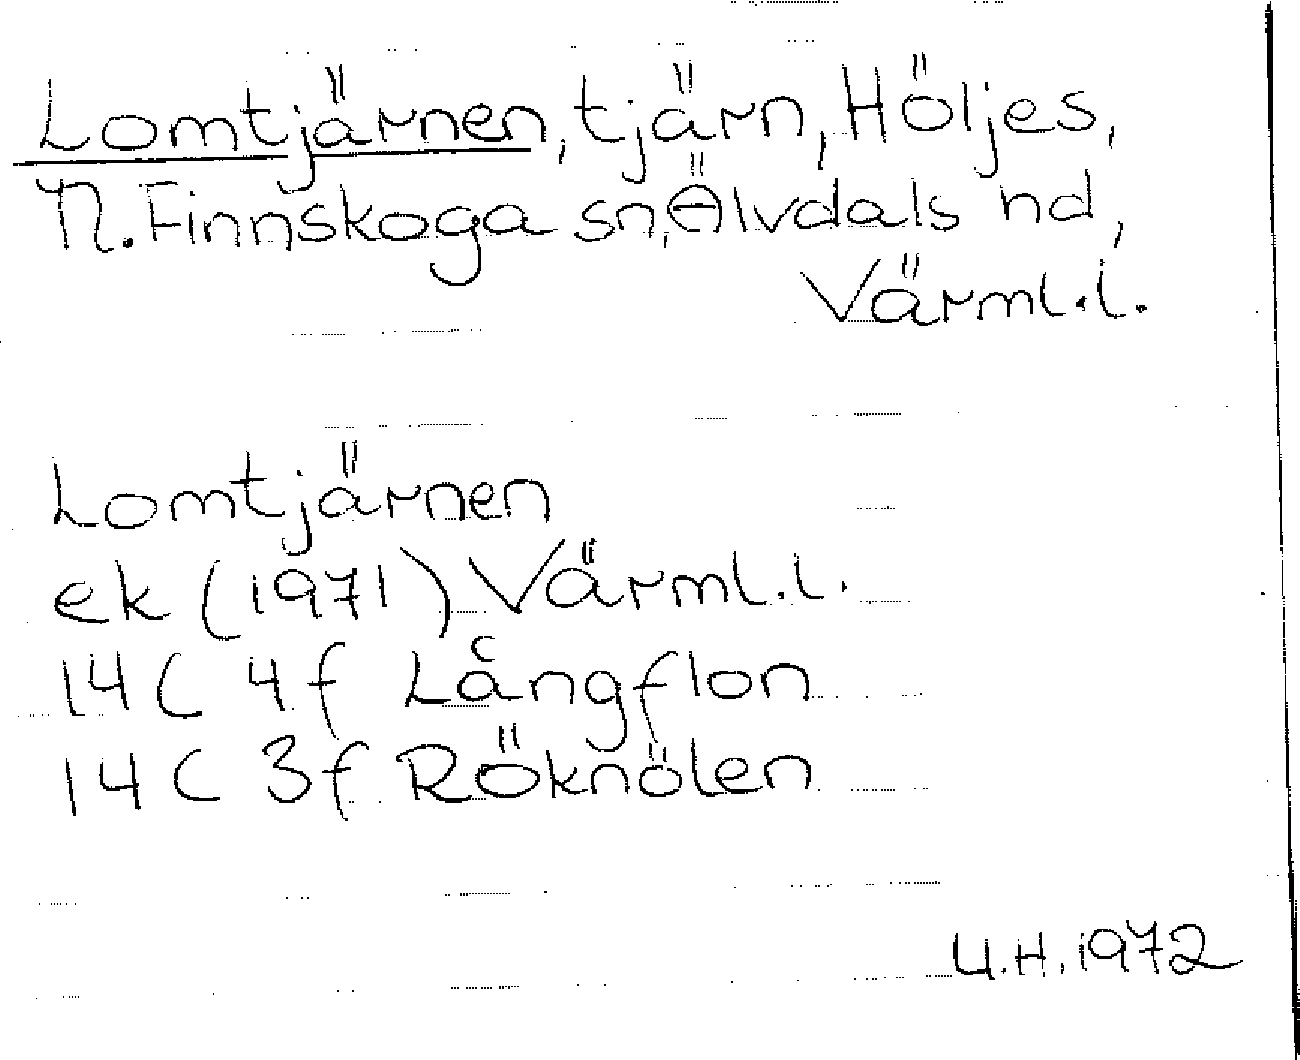 Lomtjärnen, tjärn, Höljes,
N. Finnskoga sn, Älvdals hd,
Värml.l.
Lomtjärnen
ek (1971) Värml.l.
14C 4f Långflon
14C 3f Röknölen
U.H. 1972